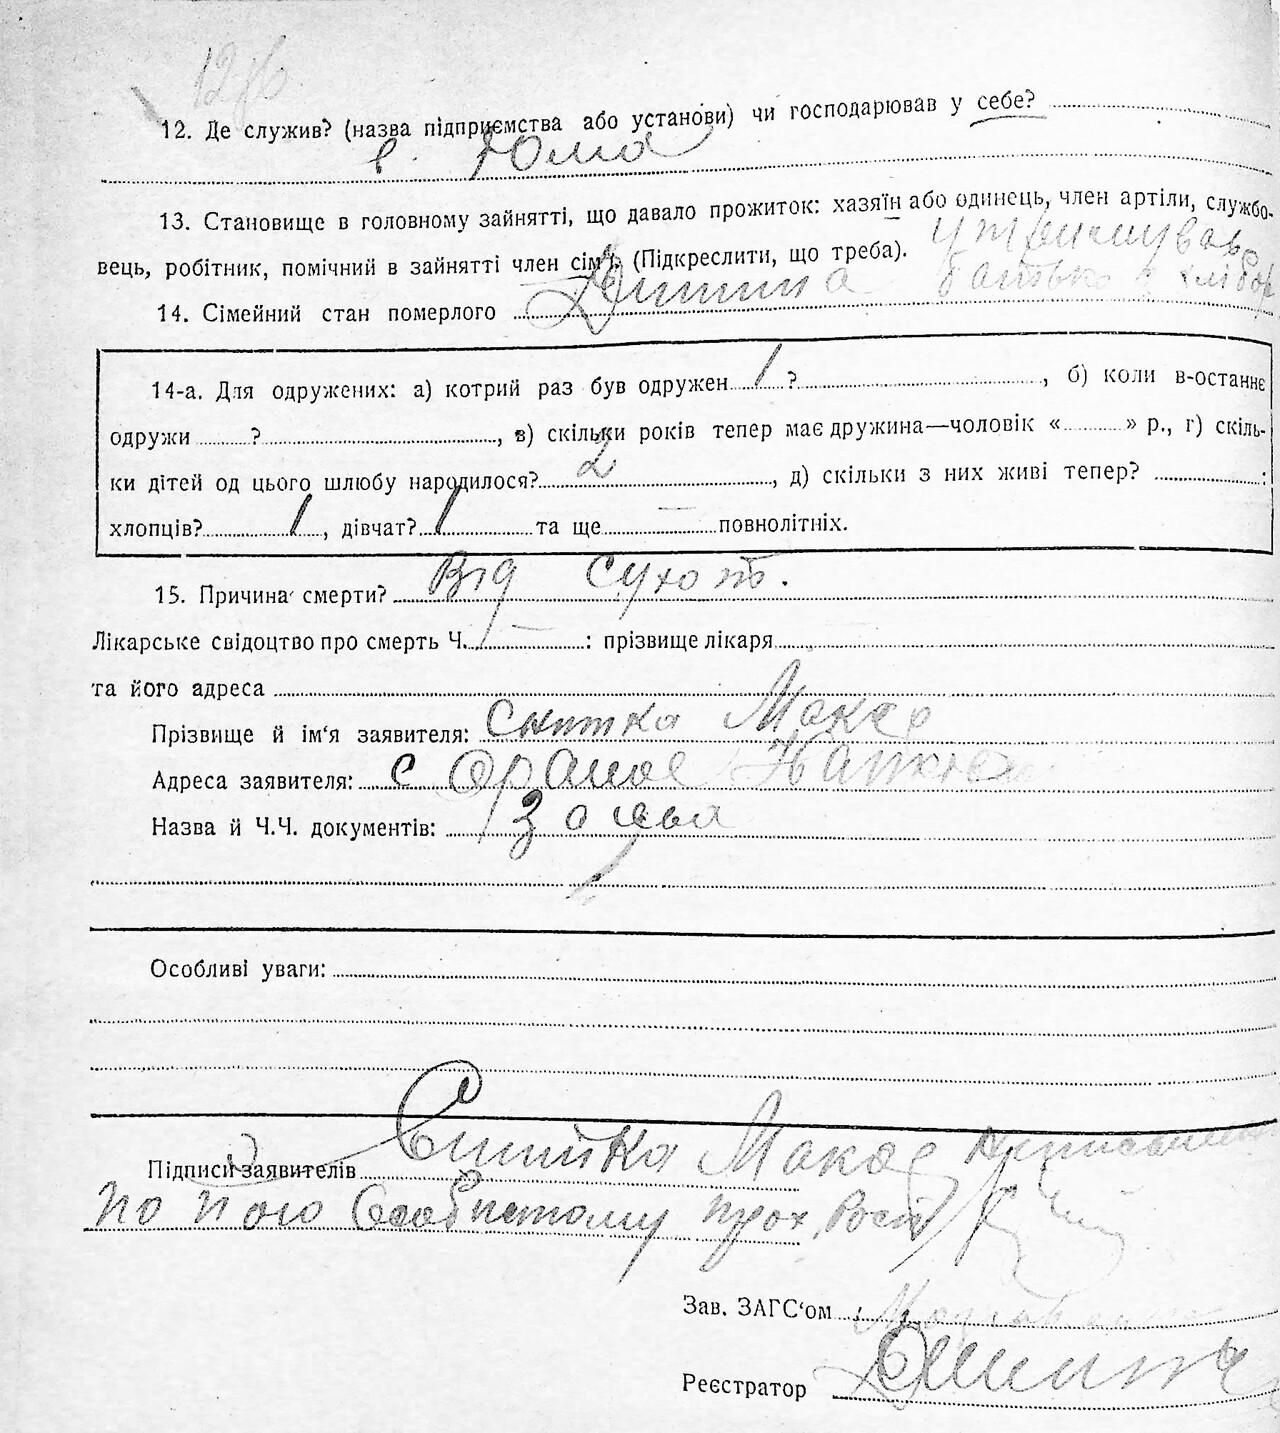 12. Де служив? (назва підприємства або установи) чи господарював у себе?
в дома
13. Становище в головному зайнятті, що давало прожиток: хазяїн або одинець, член артіли, службо-
вець, робітник, помічний в зайнятті член сім'ї. (Підкреслити, що треба). утримував
14. Сімейний стан померлого Дитина батько хлібор
14-а. Для одружених: а) котрий раз був одружен 1 ?, б) коли в-останнє
одружи ?, в) скільки років тепер має дружина—чоловік « » р., г) скіль-
ки дітей од цього шлюбу народилося? 2, д) скільки з них живі тепер? :
хлопців? 1, дівчат? 1 та ще — повнолітніх.
15. Причина смерти? Від сухот.
Лікарське свідоцтво про смерть Ч. — : прізвище лікаря
та його адреса
Прізвище й ім'я заявителя: Снитка Макар
Адреса заявителя: с Ораное
Назва й Ч.Ч. документів:
Особливі уваги:
Підписи заявителів Снитка Макар неписьмен
по його Особистому прох
Зав. ЗАГС'ом
Реєстратор